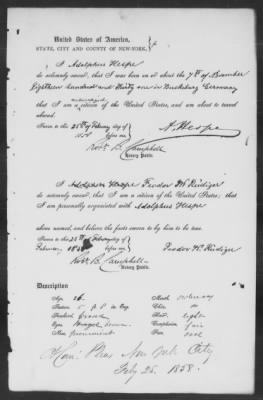 United States of America,
STATE, CITY AND COUNTY OF NEW-YORK,
I Adolphus Hespe
do solemnly swear, that I was born on or about the 7th of November
Eighteen hundred and thirty one in Germany
that I am a naturalized citizen of the United States, and am about to travel
abroad.
Sworn to this 25th of February day of
1858 before me
A. Hespe
Robt B. Campbell
Notary Public.
I Theodor W. Rüdiger
do solemnly swear, that I am a citizen of the United States; that I
am personally acquainted with Adolphus Hespe
above named, and believe the facts sworn to by him to be true.
Sworn to this 25th February day of
February, 1858 before me
Robt B. Campbell
Notary Public.
Description
Age 26
Mouth ordinary
Stature 5
Chin
Forehead
Hair light
Eyes brown
Complexion fair
Nose prominent
Face oval
New York City
Feby 25. 1858.